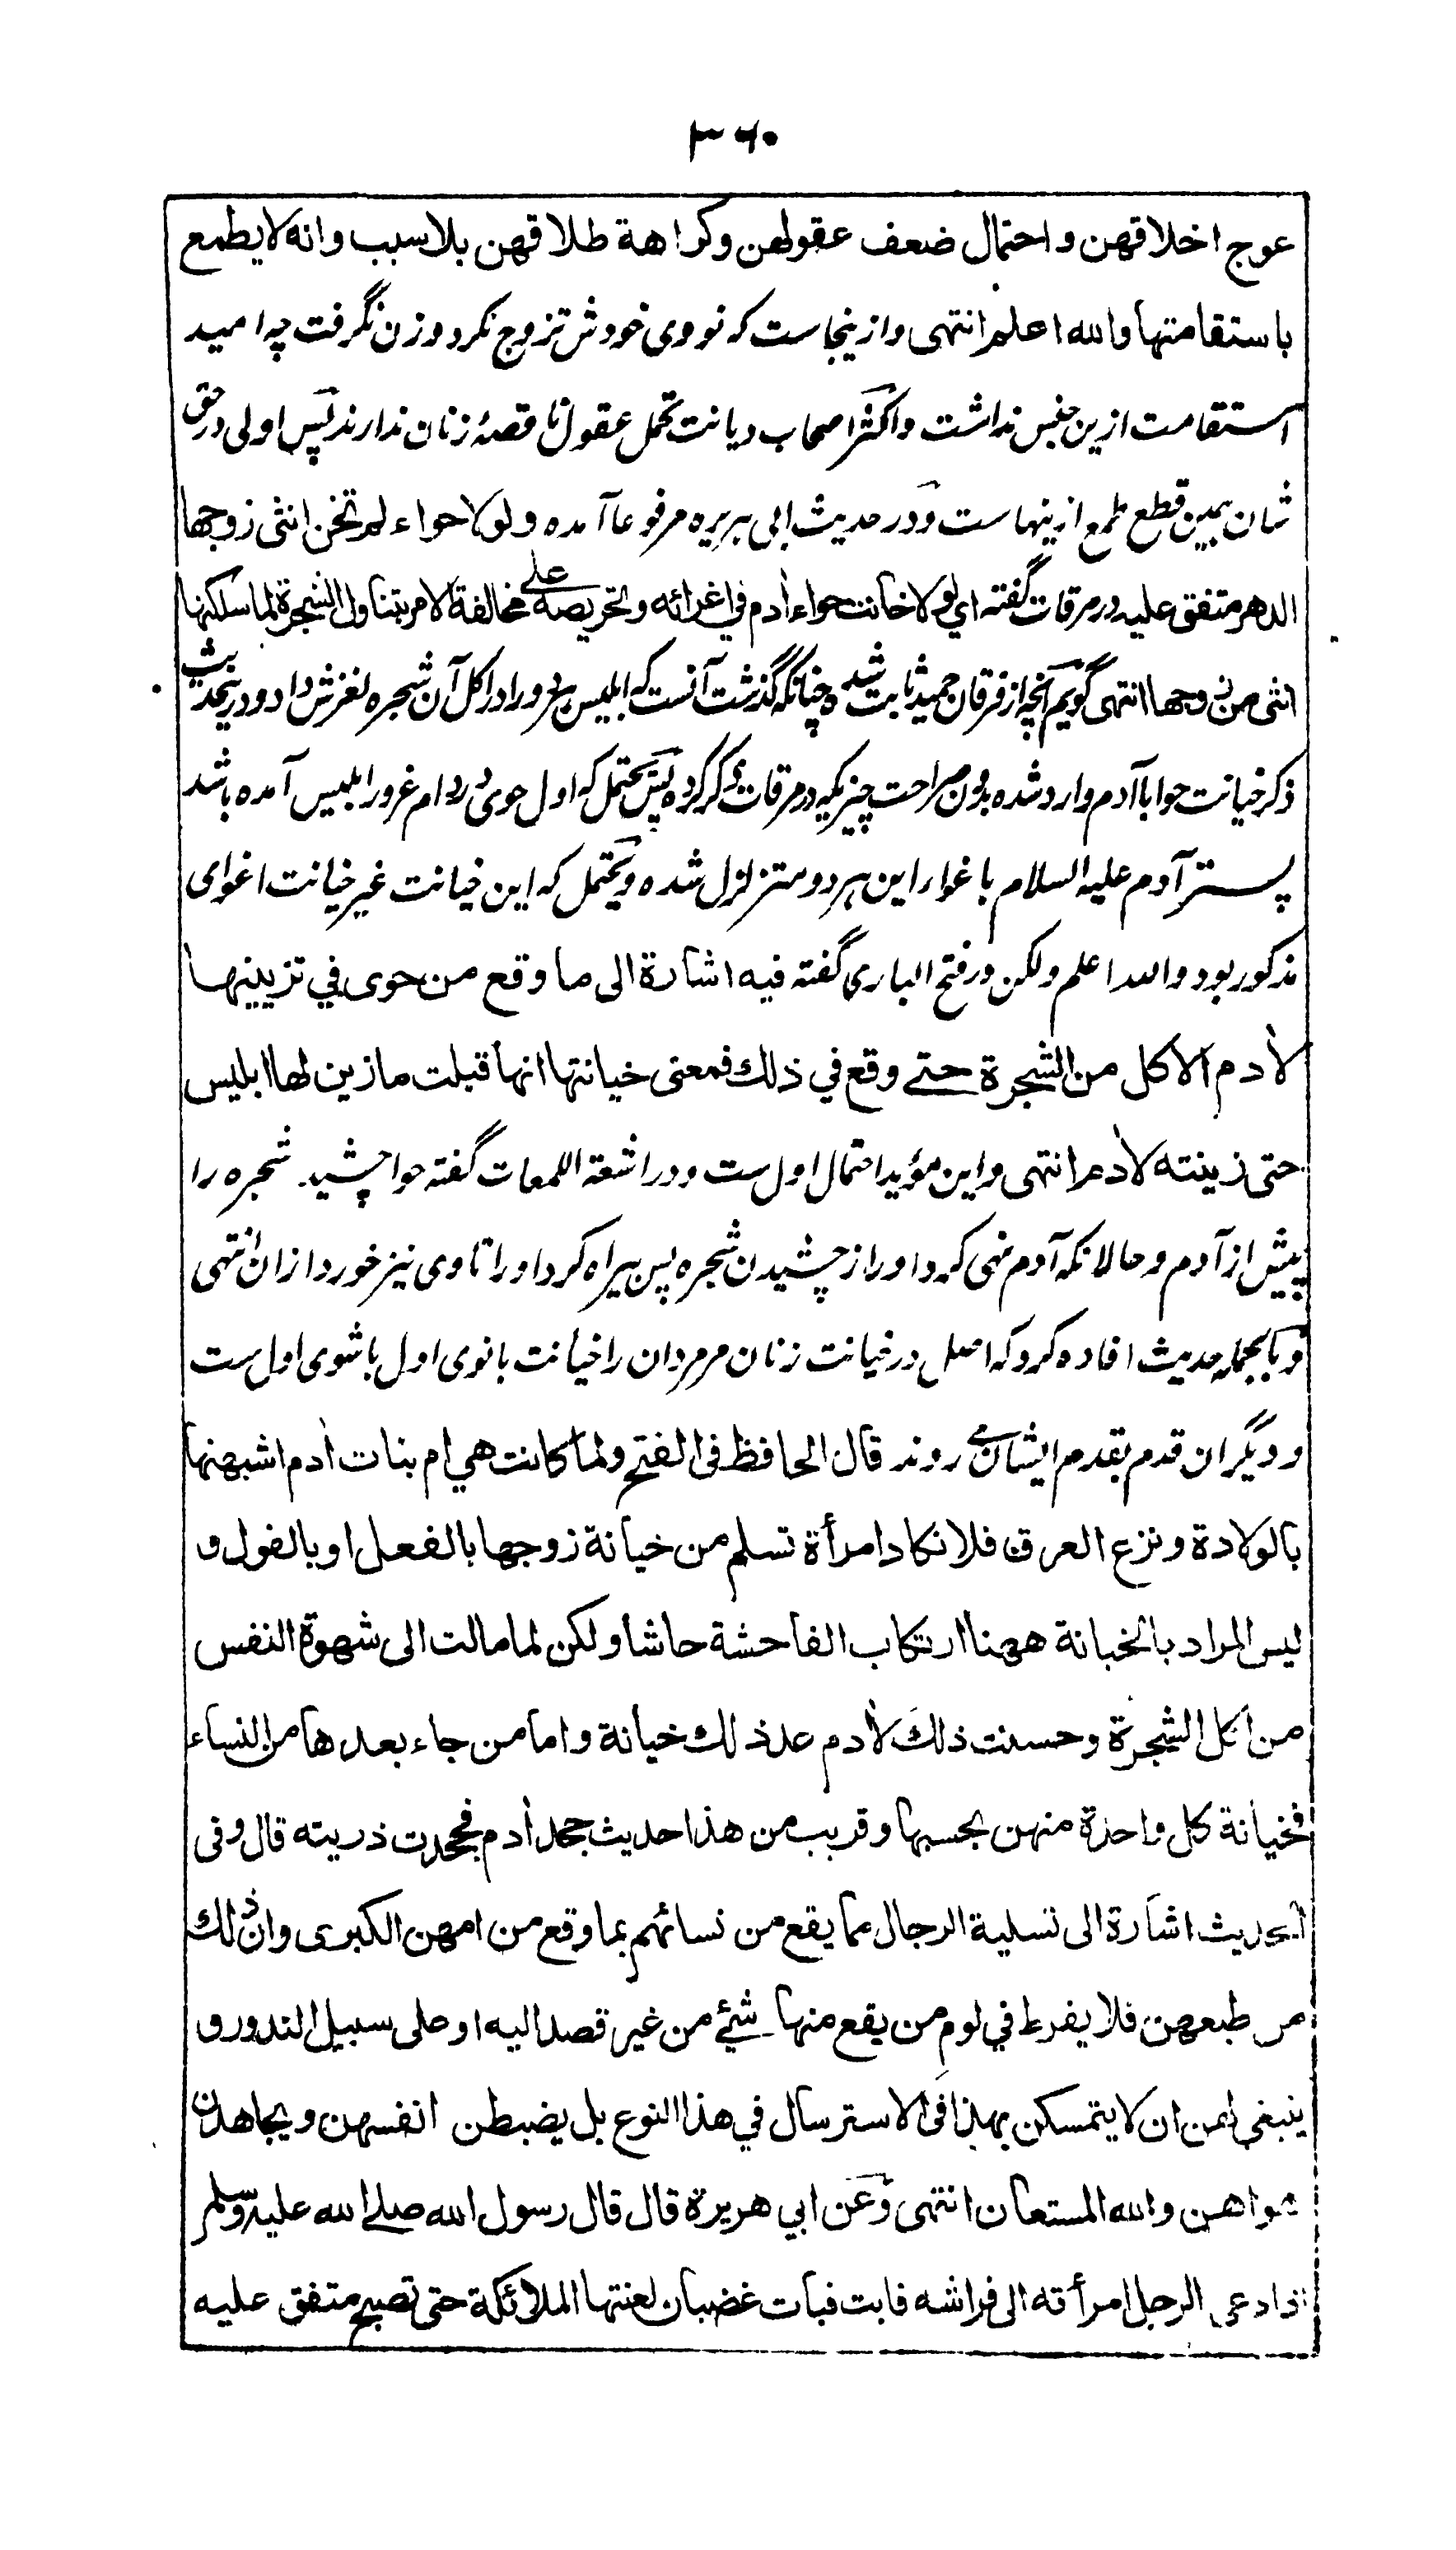 ۳۶۰
عوج اخلاقهن و احتمال ضعف عقولهن وكراهة طلاقهن بلا سبب وانه لا يطمع
باستقامتها والله اعلم انتهى وازینجاست که نووی خودش تزوج نکرد و زن نگرفت چه امید
استقامت ازین جنس نداشت و اکثر اصحاب دیانت تحمل عقول ناقصهٔ زنان ندارند پس اولی در حق
شان ہمین قطع طمع ازینهاست و در حدیث ابی ہریره مرفوعا آمده ولولا حواء لم تخن انثى زوجها
الدهر متفق عليه در مرقات گفته اي لولا خانت حواء أدم في اغرائه وتحريصه على مخالفة الامر بتناول الشجرة لما سلكتها
انثى من زوجها انتهى گویم آنچه از فرقان حمید ثابت شده چنانکه گذشت آنست که ابلیس ہر دو را در اکل آن شجره لغزش داد و درینحدیث
ذکر خیانت حوا با آدم وارد شده بدون صراحت چیزیکه در مرقات ذکر کرده پس محتمل که اول حوی در دام غرور ابلیس آمده باشد
پستر آدم علیه السلام باغوار این ہر دو متزلزل شده و محتمل که این خیانت غیر خیانت اغوای
مذکور بود والله اعلم ولکن در فتح الباری گفته فيه اشارة الى ما وقع من حوى في تزيينها
لأدم الاكل من الشجرة حتى وقع في ذلك فمعنى خيانتها انها قبلت ما زين لها ابليس
حتى زينته لأدم انتهى و این مؤید احتمال اول ست و در اشعة اللمعات گفته حوا چشید شجره را
پیش از آدم و حالانکه آدم نہی کرد او را از چشیدن شجره پس بیراه کرد او را تا وی نیز خورد ازان انتہی
و بالجمله حدیث افاده کرد که اصل در خیانت زنان مر مردان را خیانت بانوی اول با شوی اول ست
و دیگران قدم بقدم ایشان می روند قال الحافظ في الفتح ولما كانت هي ام بنات أدم اشبهنها
بالولادة ونزع العرق فلا تكاد امرأة تسلم من خيانة زوجها بالفعل او بالقول و
ليس المراد بالخيانة ههنا ارتكاب الفاحشة حاشا ولكن لما مالت الى شهوة النفس
من اكل الشجرة وحسنت ذلك لأدم عد ذلك خيانة واما من جاء بعدها من النساء
فخيانة كل واحدة منهن بحسبها وقريب من هذا حديث جحد أدم فجحدت ذريته قال وفي
الحديث اشارة الى تسلية الرجال مما يقع من نسائهم بما وقع من امهن الكبرى وان ذلك
من طبعهن فلا يفرط في لوم من يقع منها شئ من غير قصد اليه او على سبيل الندور و
ينبغي لهن ان لا يتمسكن بهذا في الاسترسال في هذا النوع بل يضبطن انفسهن ويجاهدن
هواهن والله المستعان انتهى وعن ابي هريرة قال قال رسول الله صلى الله عليه وسلم
اذا دعى الرجل امرأته الى فراشه فابت فبات غضبان لعنتها الملائكة حتى تصبح متفق عليه